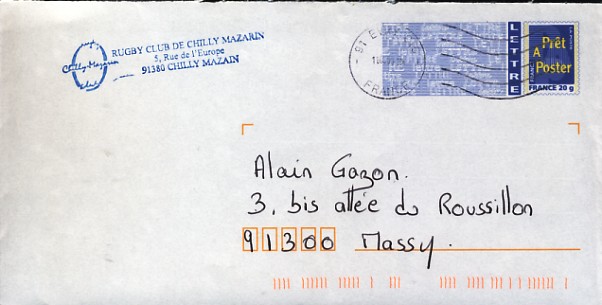 RUGBY CLUB DE CHILLY MAZARIN
5, Rue de l'Europe
91380 CHILLY MAZAIN
Chilly-Mazarin
club
91 E
FRANCE
LETTRE
Prêt
A Poster
FRANCE 20 g
Alain Gazon.
3, bis allée du Roussillon
91300 Massy.